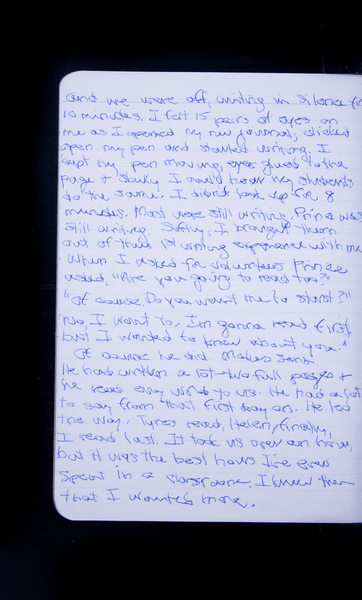 and we were off, writing in silence for
10 minutes. I felt 15 pairs of eyes on
me as I opened my new journal, clicked
open my pen and started writing. I
kept my pen moving, eyes glued to the
page & shakily I could hear my students
do the same. I didn't look up for 8
minutes. Most were still writing. Prince was
still writing. Softly, I brought them
out of their 1st writing experience with me.
When I asked for volunteers Prince
asked, "Are you going to read too?"
"Of course. Do you want me to start?"
"No, I want to, I'm gonna read first
but I wanted to know about you."
Of course he did. Makes sense.
He had written a lot - two full pages &
he read every word to us. He had a lot
to say from that first day on. He led
the way, Tyres read, Helen, finally,
I read last. It took us over an hour,
but it was the best hour I've ever
spent in a classroom. I knew then
that I wanted more.